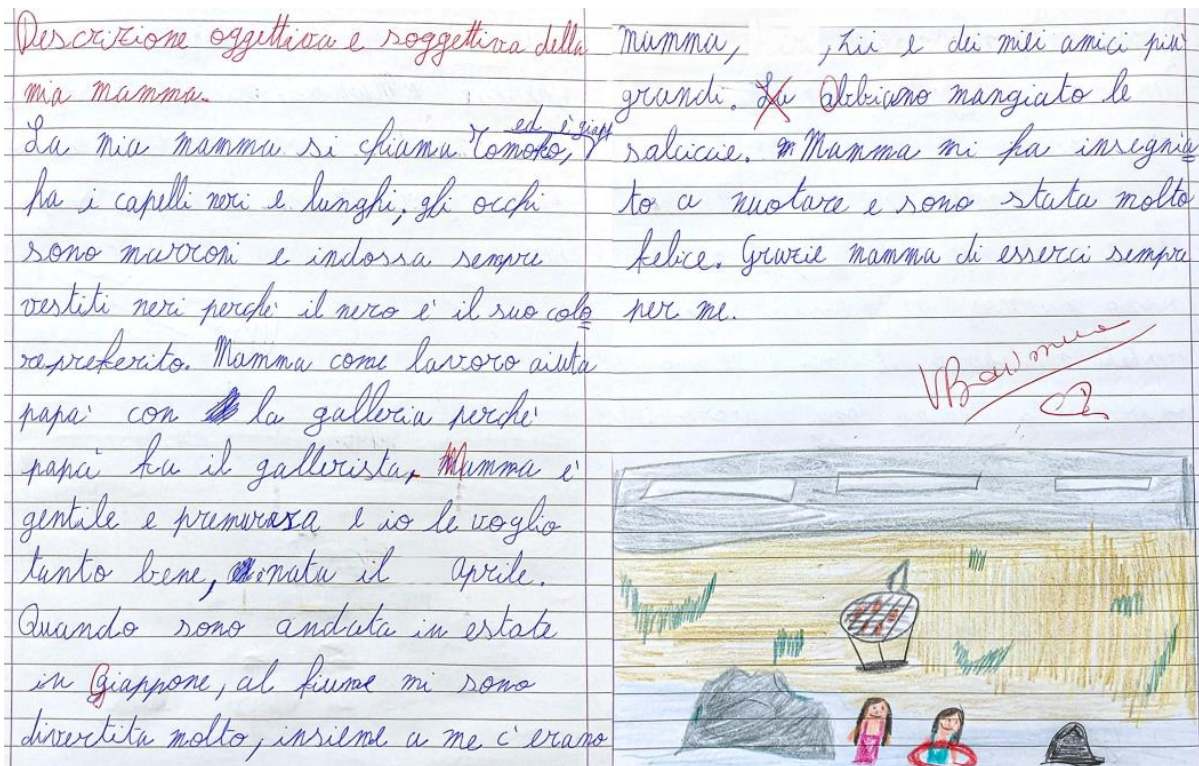 Descrizione oggettiva e soggettiva della
mia mamma.
La mia mamma si chiama Tomoko, ed è giapp
ha i capelli neri e lunghi, gli occhi
sono marroni e indossa sempre
vestiti neri perché il nero è il suo colo
re preferito. Mamma come lavoro aiuta
papà con la galleria perché
papà fa il gallerista. Mamma è
gentile e premurosa e io le voglio
tanto bene, nata il aprile.
Quando sono andata in estate
in Giappone, al fiume mi sono
divertita molto, insieme a me c'erano
mamma, , zii e dei miei amici più
grandi. Abbiamo mangiato le
salciccie. Mamma mi ha insegnia
to a nuotare e sono stata molto
felice. Grazie mamma di esserci sempre
per me.